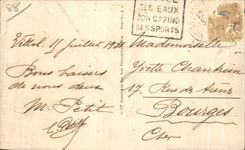 88
SES EAUX
SON CASINO
SES SPORTS
Vittel, 15 juillet 1931
Mademoiselle
Bons baisers
de nous deux
M. Petit
Yvette
17, Rue de
Bourges
Cher